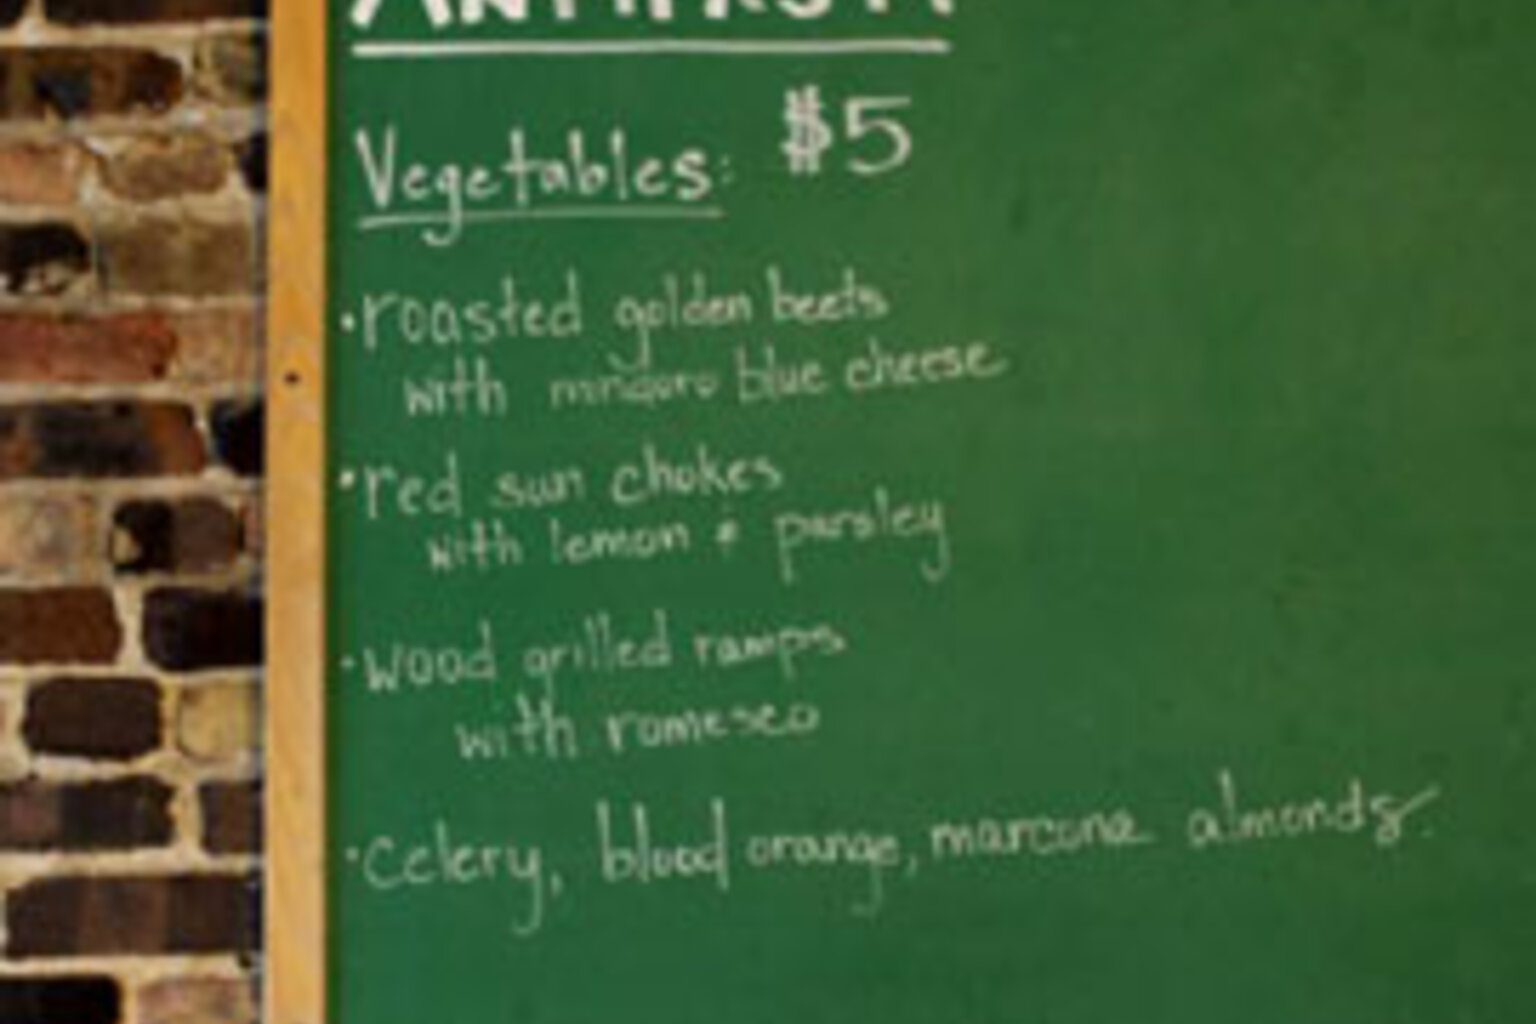 ANTIPASTI
Vegetables: $5
•roasted golden beets
with mindoro blue cheese
•red sun chokes
with lemon & parsley
•wood grilled ramps
with romesco
•celery, blood orange, marcona almonds.